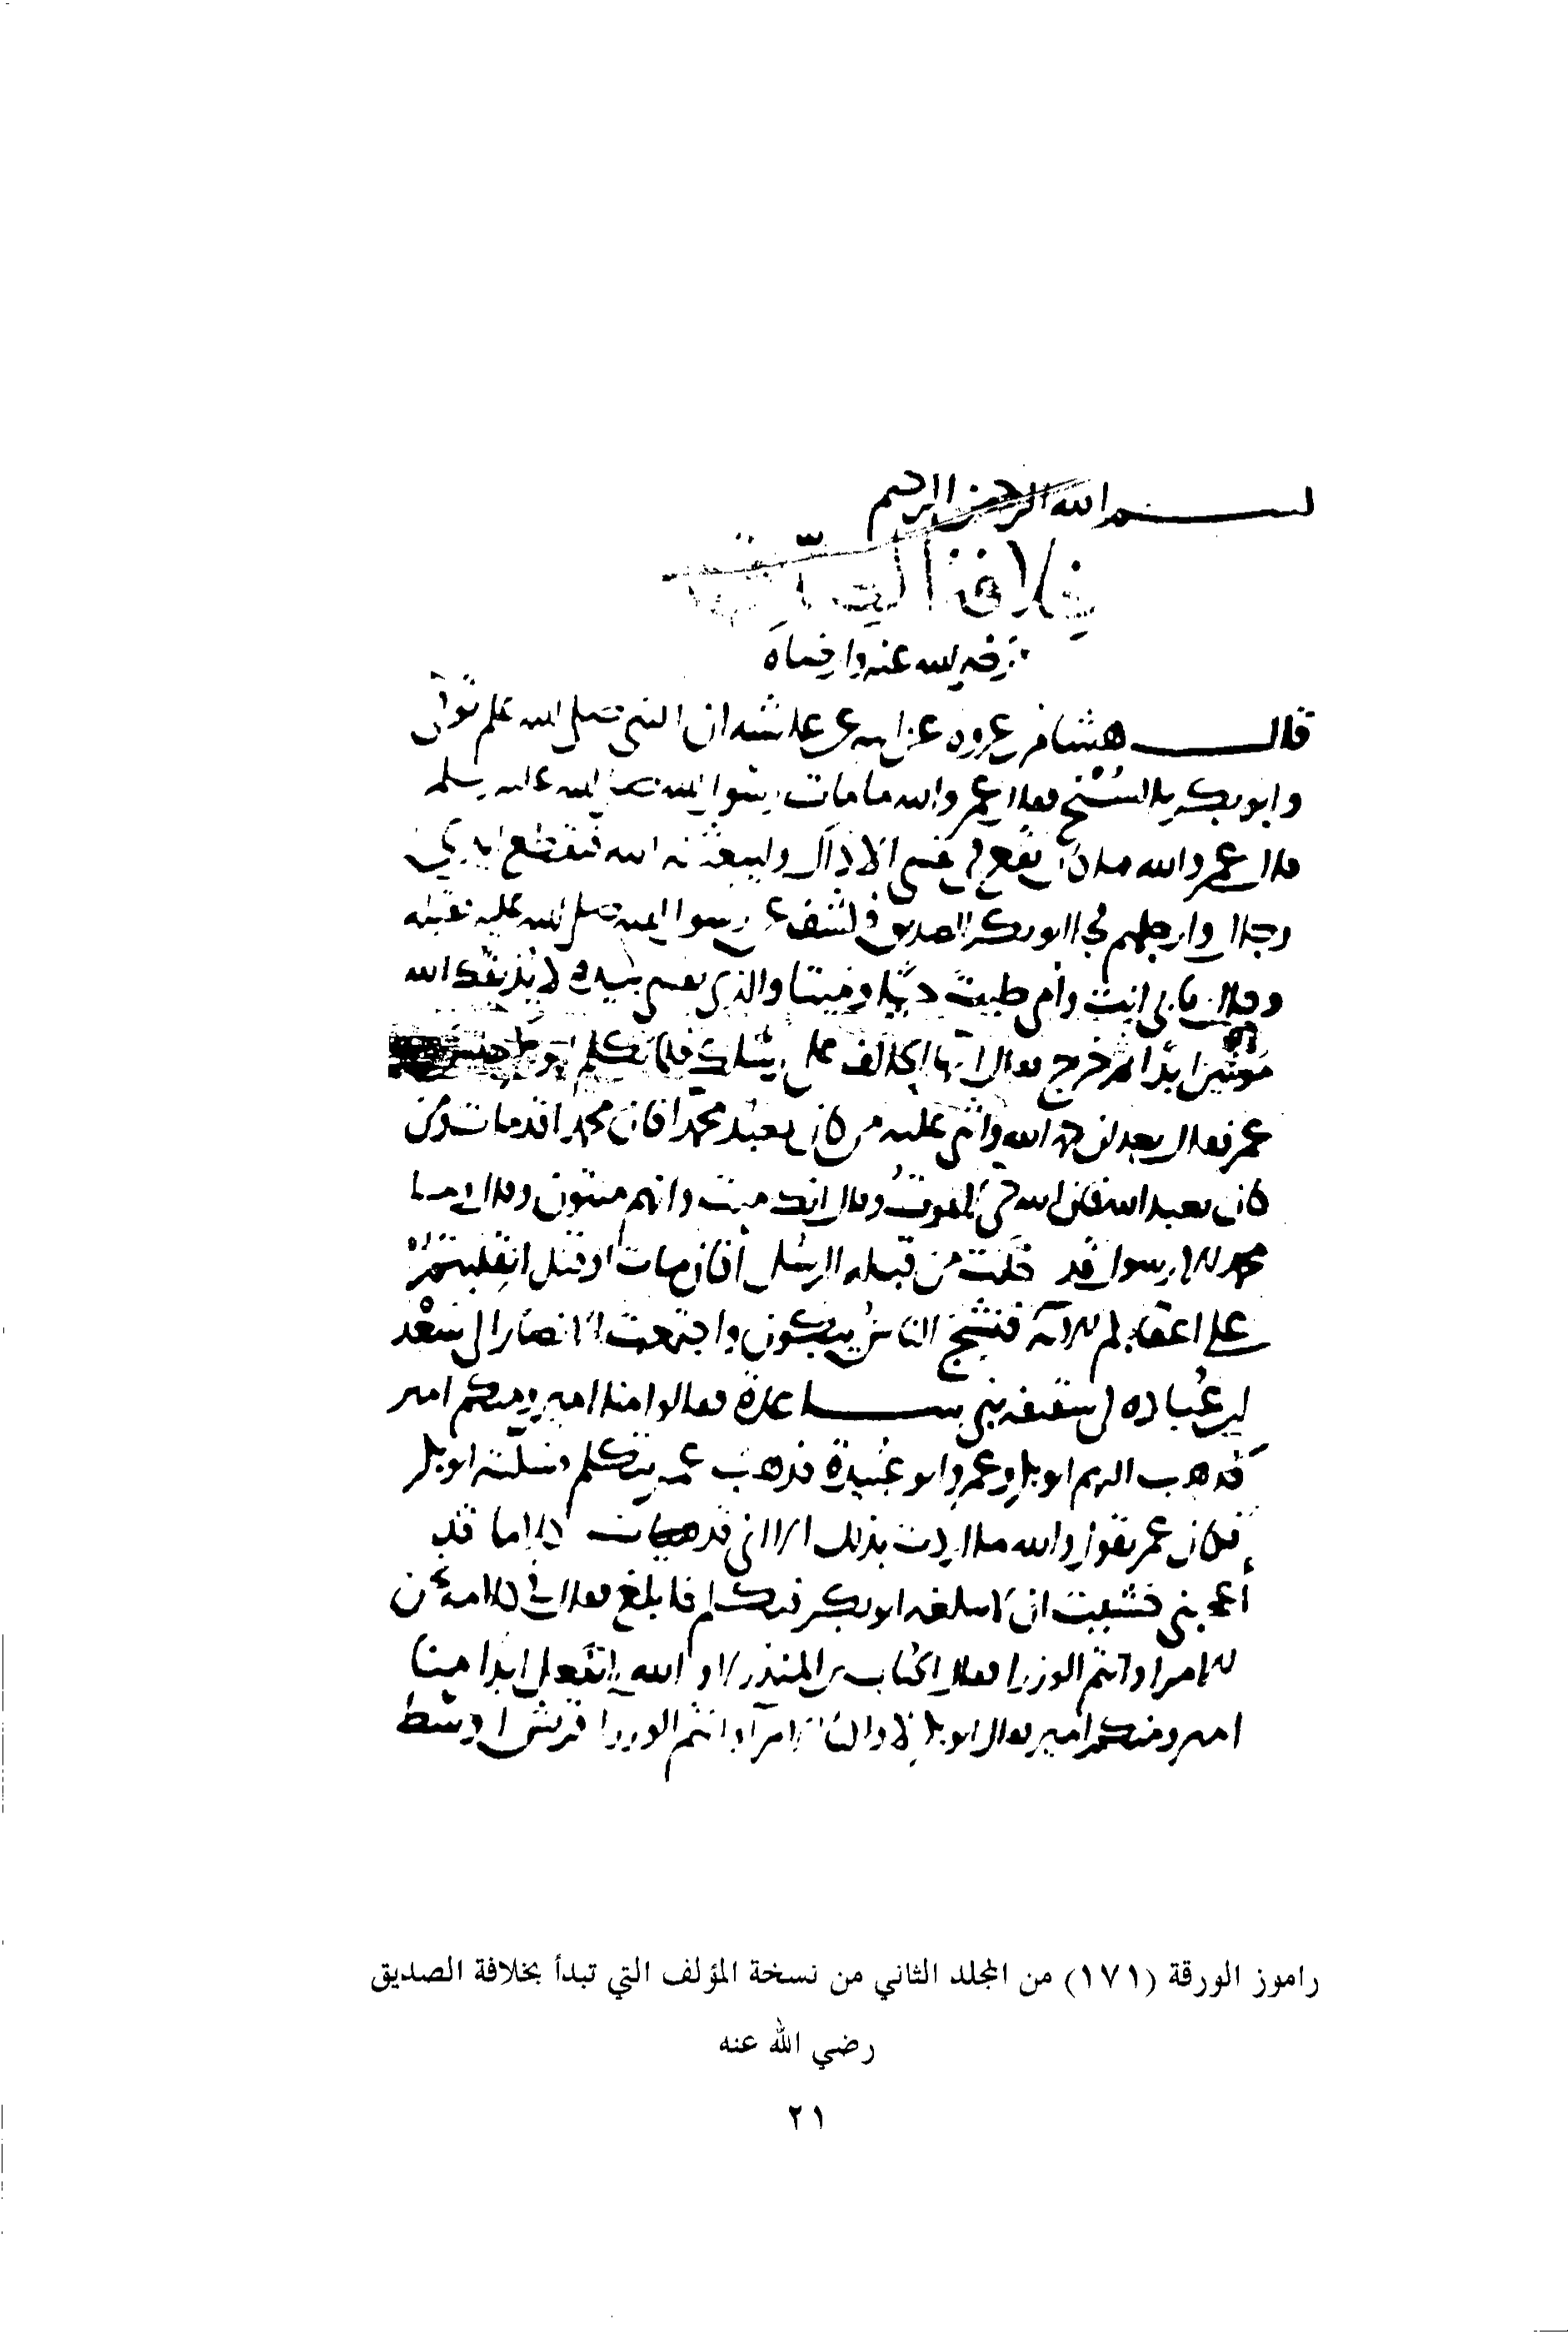 بسم الله الرحمن الرحيم
خلافة الصديق
رضي الله عنه وارضاه
قال هشام بن عروة عن ابيه عن عائشة ان النبي صلى الله عليه وسلم توفي
وابو بكر بالسنح فقال عمر والله ما مات رسول الله صلى الله عليه وسلم
قال عمر والله ما كان يقع في نفسي الا ذاك وليبعثنه الله فيقطع ايدي
رجال وارجلهم فجا ابو بكر الصديق فكشف عن رسول الله صلى الله عليه فقبله
وقال بابي انت وامي طبت حيا وميتا والذي نفسي بيده لا يذيقك الله
موتتين ابدا ثم خرج فقال ايها الحالف على رسلك فلما تكلم ابو بكر جلس
عمر فقال بعد ان حمد الله واثنى عليه من كان يعبد محمدا فان محمدا قد مات ومن
كان يعبد الله فان الله حي لا يموت وقال انك ميت وانهم ميتون وقال وما
محمد الا رسول قد خلت من قبله الرسل أفان مات او قتل انقلبتم
على اعقابكم الآية فنشج الناس يبكون واجتمعت الانصار الى سعد
بن عبادة في سقيفة بني ساعدة فقالوا منا امير ومنكم امير
فذهب اليهم ابو بكر وعمر وابو عبيدة فذهب عمر يتكلم فسكته ابو بكر
فكان عمر يقول والله ما اردت بذلك الا اني قد هيات كلاما قد
أعجبني خشيت ان لا يبلغه ابو بكر فتكلم فابلغ فقال في كلامه نحن
الامرا وانتم الوزرا فقال الحباب بن المنذر لا والله لا نفعل ابدا منا
امير ومنكم امير فقال ابو بكر لا ولكنا الامرآ وانتم الوزرا قريش اوسط
راموز الورقة (١٧١) من المجلد الثاني من نسخة المؤلف التي تبدأ بخلافة الصديق
رضي الله عنه
٢١